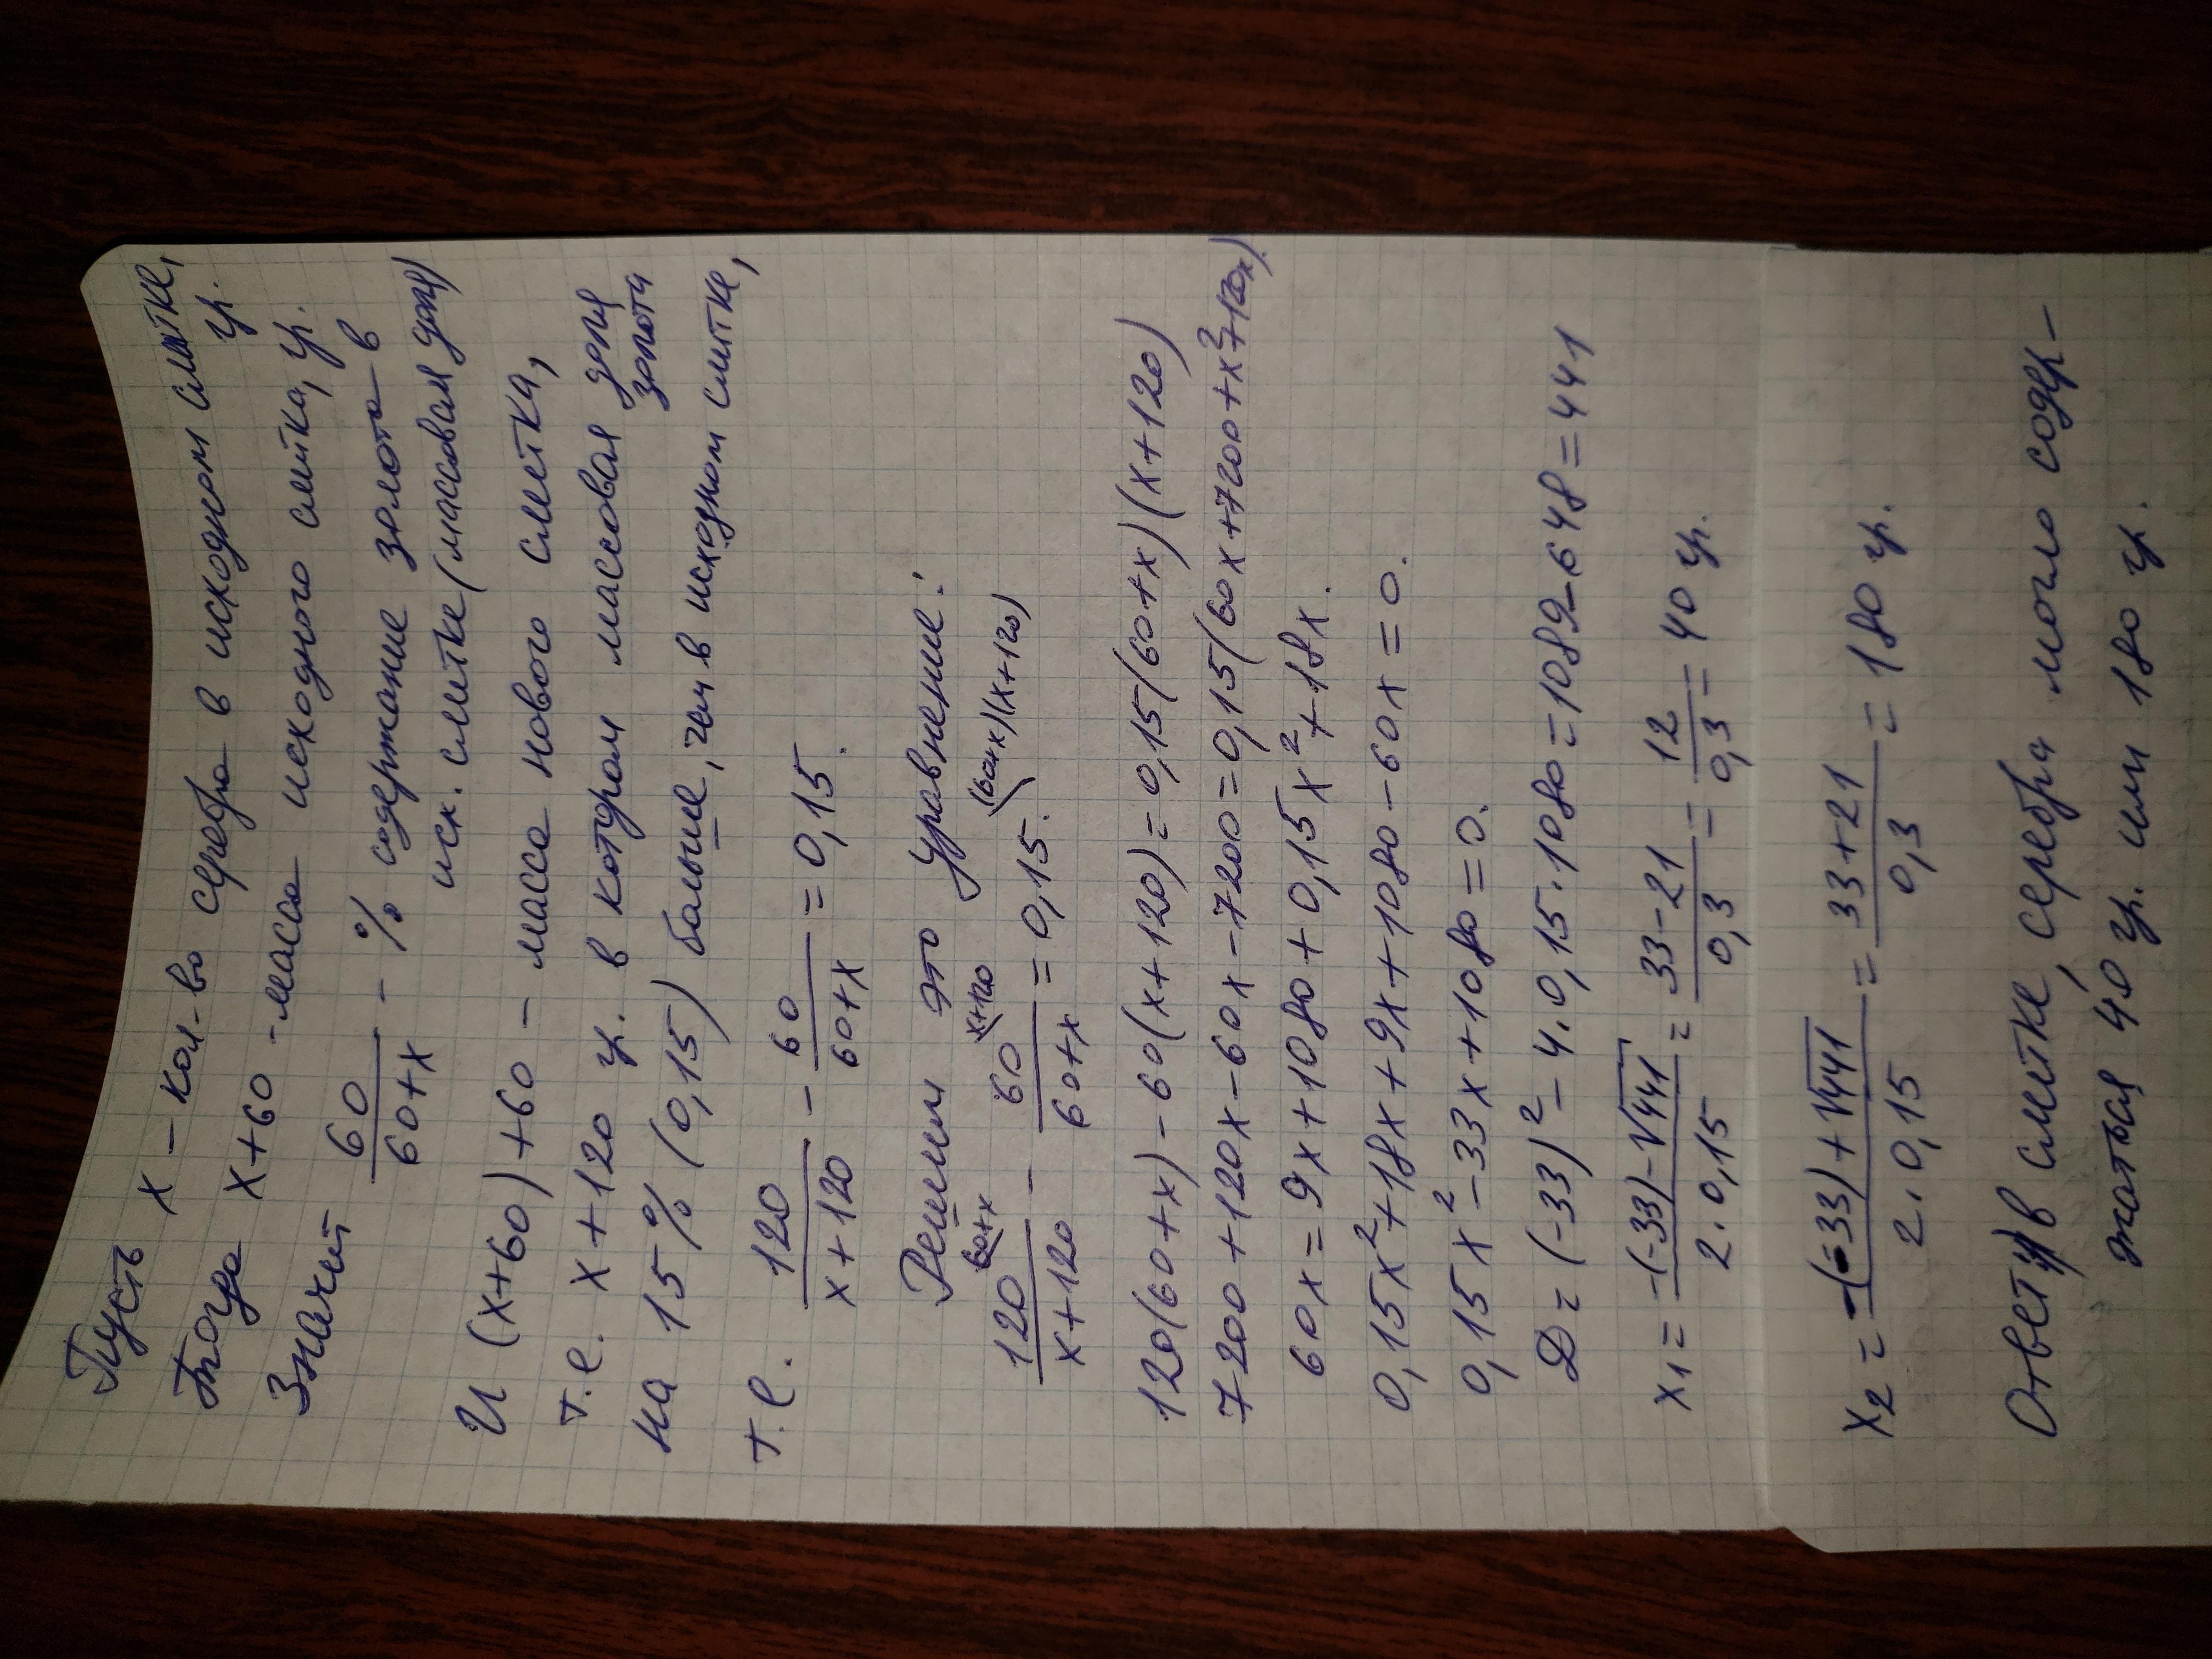 Пусть x - кол-во серебра в исходном слитке, гр.
Тогда x+60 - масса исходного слитка, гр.
Значит 60/60+x - % содержание золота в
иск. слитке (массовая доля)
И (x+60)+60 - масса нового слитка,
т.е. x+120 гр. в котором массовая доля золота
на 15% (0,15) больше, чем в исходном слитке,
т.е. 120/x+120 - 60/60+x = 0,15.
Решим это уравнение:
120/x+120 \60+x - 60/60+x \x+120 = 0,15. \(60+x)(x+120)
120(60+x)-60(x+120)=0,15(60+x)(x+120)
7200+120x-60x-7200=0,15(60x+7200+x²+120x)
60x=9x+1080+0,15x²+18x.
0,15x²+18x+9x+1080-60x=0.
0,15x²-33x+1080=0.
D=(-33)²-4·0,15·1080=1089-648=441
x₁= -(-33)-√441/2·0,15 = 33-21/0,3 = 12/0,3 = 40 гр.
x₂= -(-33)+√441/2·0,15 = 33+21/0,3 = 180 гр.
Ответ: в слитке, серебра могло содер-
жаться 40 гр. или 180 гр.